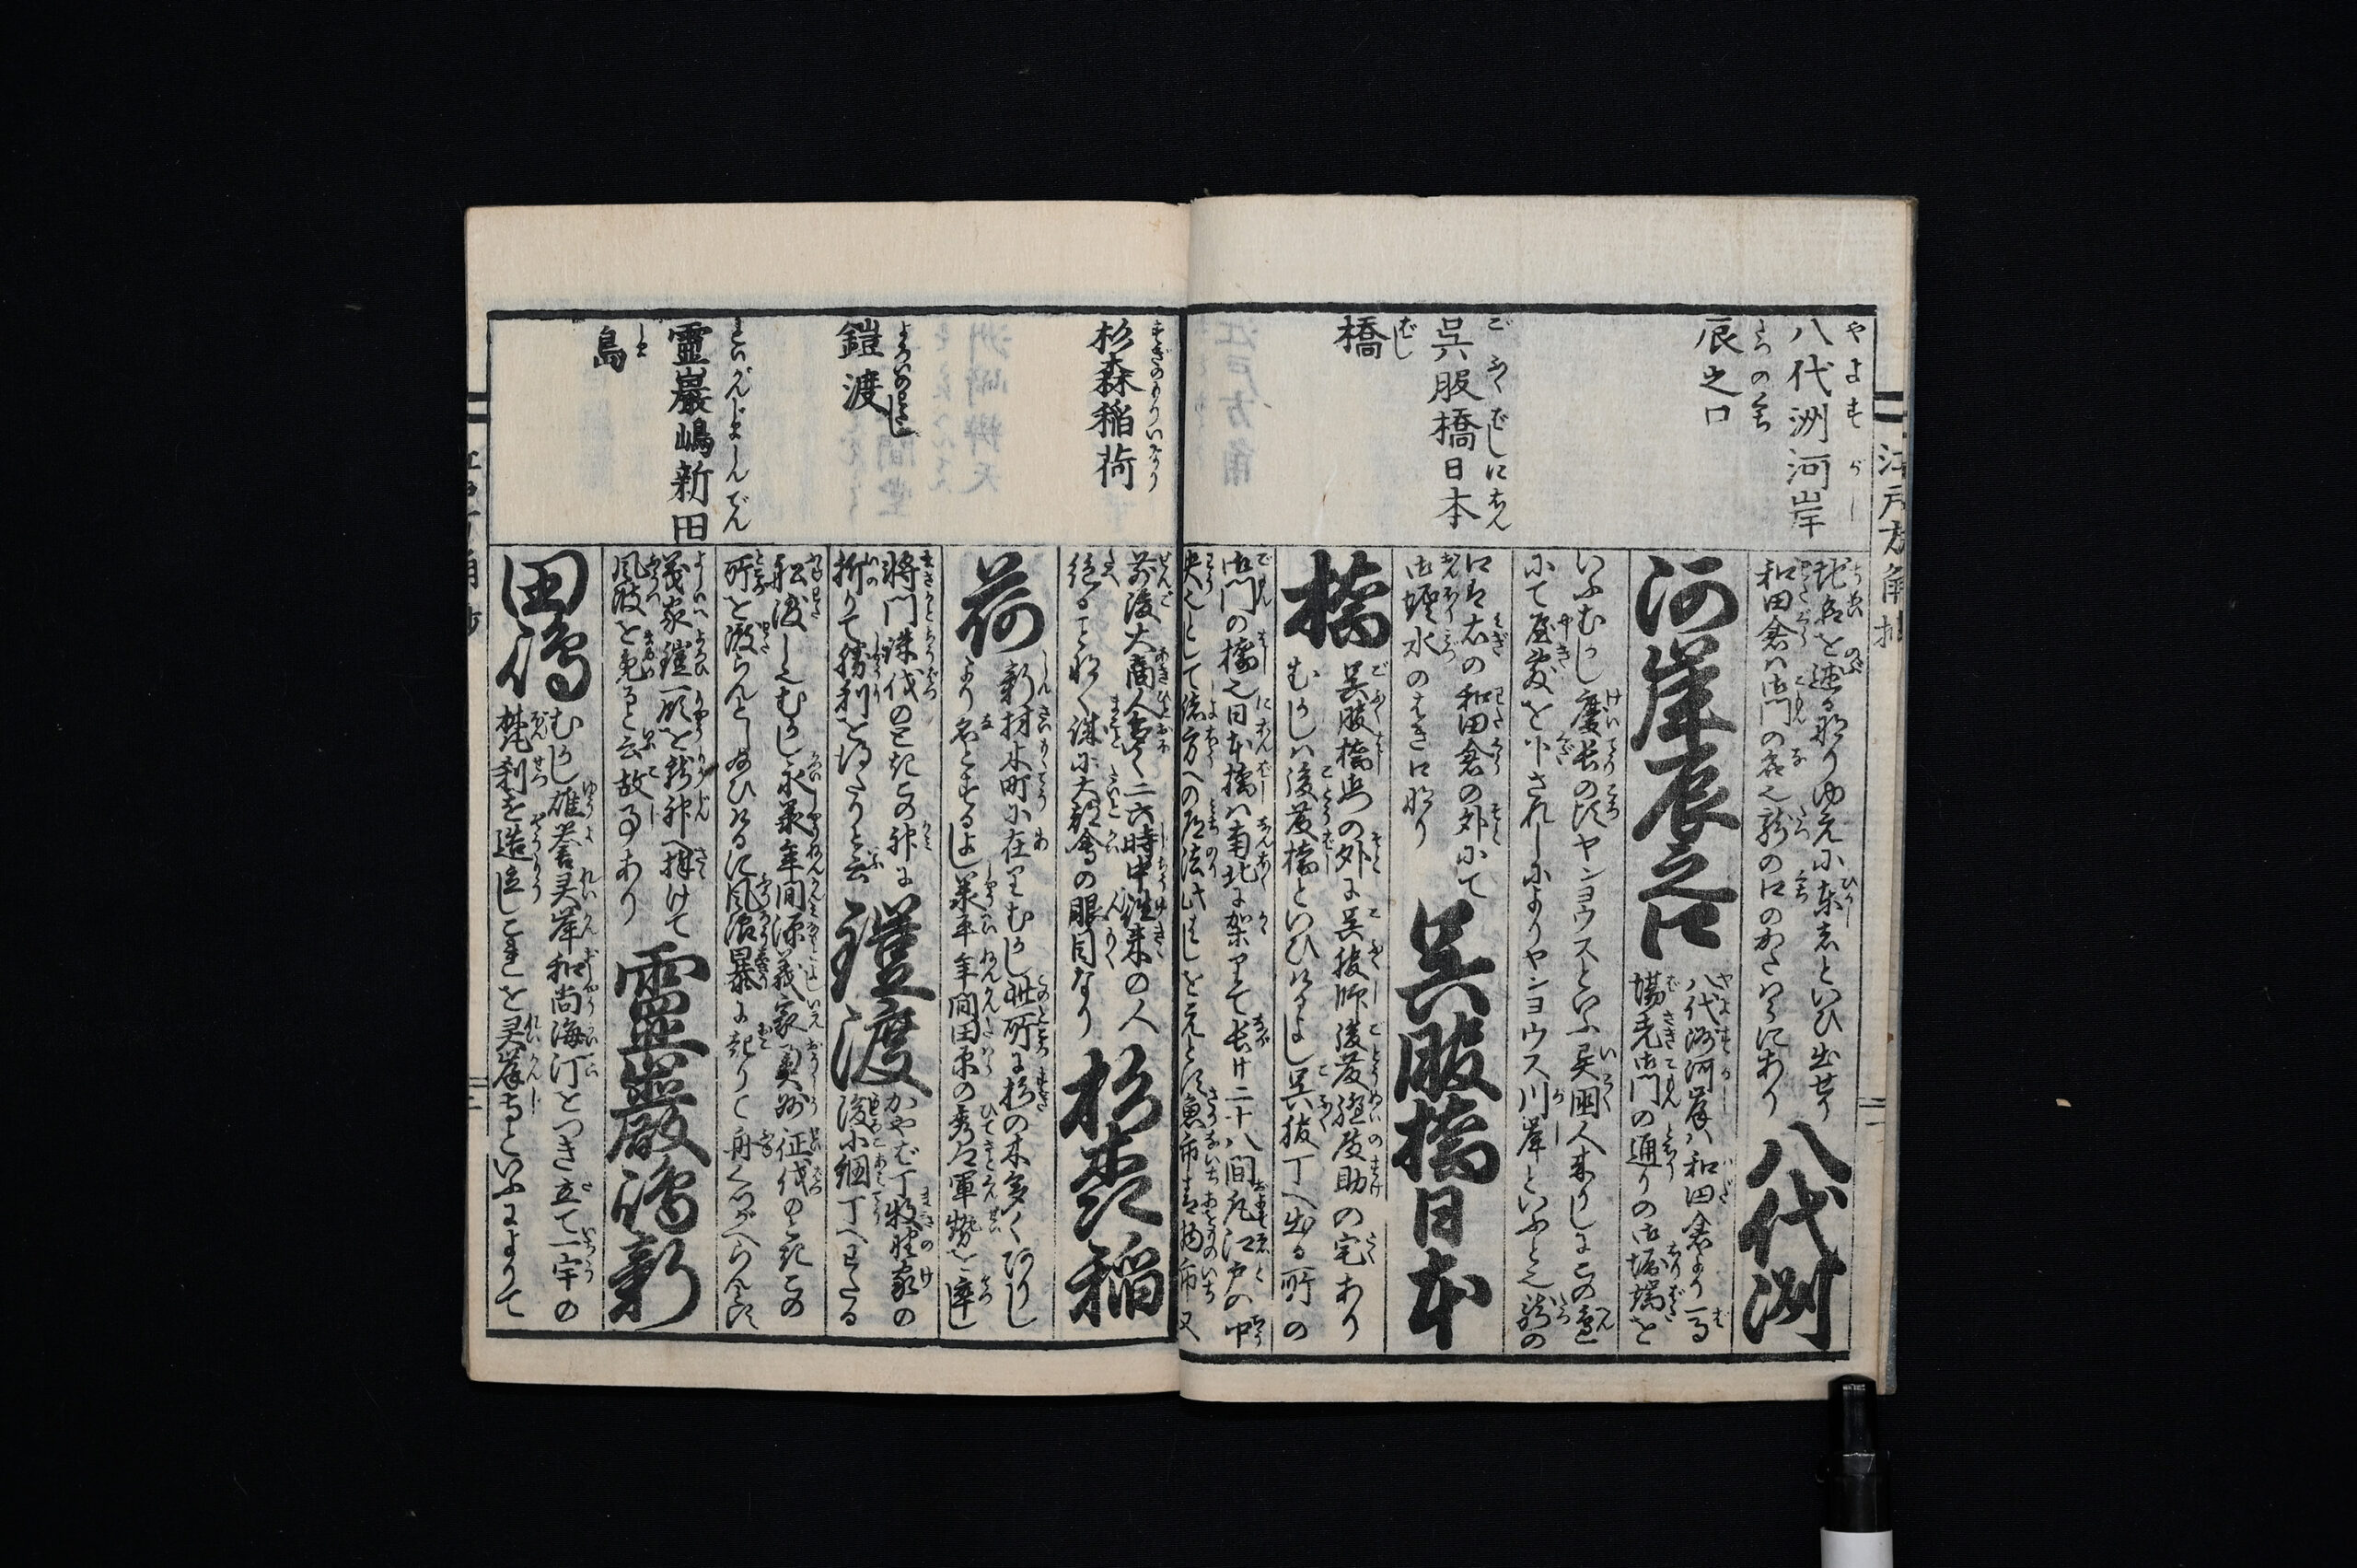 八代洲河岸
辰之口
呉服橋日本
橋
和田倉は御門の名也龍の口のかたはらにあり
八代洲
河岸辰之口
八代洲河岸は和田倉より馬
場先御門の通りの御堀端を
いふむかし慶長の頃ヤンヨウスといふ異国人来りしにこの辺
にて屋敷を下されしによりヤンヨウス川岸といふと也龍の
口は右の和田倉の外にて
御堀水のはき口なり
呉服橋日本
橋
呉服橋御門の外に呉服師後藤縫殿助の宅あり
むかしは後藤橋といひけるよし呉服丁へ出る所の
御門の橋也日本橋は南北に架りて長サ二十八間凡江戸の中
央也として諸方への道法此はしを元とす魚市青物市又
杉森稲荷
鎧渡
霊巌嶋新田
島
前後大商人多く二六時中往来の人
絶ること なく誠に大都会の眼目なり
杉森稲
荷
新材木町に在りむかし此所に杉の木多くありし
より名とするよし承平年間田原の秀郷軍勢を率し
将門誅伐のときこの神に
祈りて勝利を得たりと云
鎧渡
かやば丁牧野家の
後小網丁へわたる
船渡し也むかし永承年間源義家奥州征伐のときこの
所を渡らんとし給ひけるに風浪暴に起りて舟くつがへらんとす
義家鎧一領を龍神へ捧けて
風波を免ると云故事あり
霊巌嶋新
田嶋
むかし雄誉霊岸和尚海汀をつき立て一宇の
梵刹を造立しこれを霊岸寺といふによりて